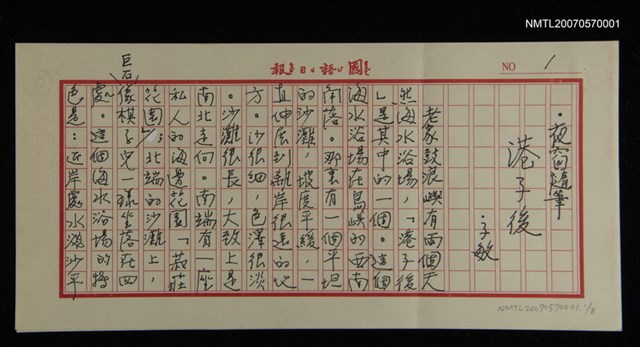 NMTL20070570001
國語日報
NO 1
·夜窗隨筆
港子後
·子敏
老家鼓浪嶼有兩個天
然海水浴場,「港子後
」是其中的一個。這個
海水浴場在島嶼的西南
角落。那裏有一個平坦
的沙灘,坡度平緩,一
直伸展到離岸很遠的地
方。沙很細,色澤很淡
。沙灘很長,大致上是
南北走向。南端有一座
私人的海邊花園「菽莊
花園」;北端的沙灘上,
巨石像棋子兒一樣坐落在四
處。這個海水浴場的特
色是:近岸處水淺沙平
NMTL20070570001 1/8